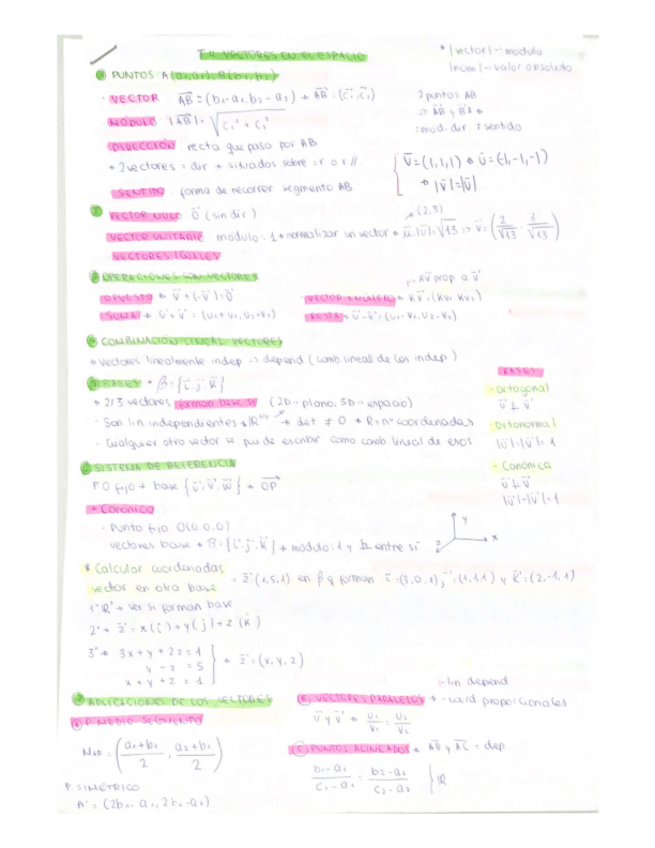 T.4. VECTORES EN EL ESPACIO
* |vector| - modulo
|num| - valor absoluto
① PUNTOS A(a₁,a₂), B(b₁,b₂)
· VECTOR AB = (b₁-a₁, b₂-a₂) → AB = (c₁, c₂)
MÓDULO |AB| = √c₁² + c₂²
2 puntos AB
⇒ AB y BA →
= mod. dir ≠ sentido
DIRECCIÓN recta que pasa por AB
→ 2 vectores = dir → situados sobre = r o r //
SENTIDO forma de recorrer segmento AB
v = (1,1,1) → u = (-1,-1,-1)
→ |v| = |u|
② VECTOR NULO 0 (sin dir)
VECTOR UNITARIO modulo = 1 → normalizar un vector → |u| = √13 ⇒ v = (2/√13, 3/√13)
(2,3)
VECTORES IGUALES
③ OPERACIONES CON VECTORES
OPUESTO → v + (-v) = 0
· VECTOR X NÚMERO → Kv = (Kv₁, Kv₂)
Kv prop. a v
SUMA → u + v = (u₁+v₁, u₂+v₂)
RESTA → u - v = (u₁-v₁, u₂-v₂)
④ COMBINACIÓN LINEAL VECTORES
→ vectores linealmente indep ⇒ depend (comb lineal de los indep)
⑤ BASES → β = {i, j, k}
→ 2/3 vectores forman base si (2D - plano, 3D - espacio)
· Son lin independientes → det ≠ 0 → R = nº coordenadas
· Cualquier otro vector se puede escribir como comb lineal de esos
BASES
- ortogonal
u ⊥ v
- Ortonormal
|u| = |v| = 1
- Canónica
u ⊥ v
|u| = |v| = 1
⑥ SISTEMA DE REFERENCIA
P.O fijo + base {u, v, w} → OP
* Canónico
· Punto fijo O(0,0,0)
vectores base → B = {i, j, k} → modulo = 1 y ⊥ entre sí
y
x
z
* Calcular coordenadas
vector en otra base
- z (1,5,1) en β q forman i = (3,0,1), j = (1,1,1) y k = (2,-1,1)
1º R → ver si forman base
2º → z = x(i) + y(j) + z(k)
3º → 3x + y + 2z = 1
y - z = 5
x + y + z = 1
→ z = (x, y, z)
⑦ APLICACIONES DE LOS VECTORES
Ⓐ P. MEDIO SEGMENTO
M = (a₁+b₁/2, a₂+b₂/2)
P. SIMÉTRICO
A' = (2b₁-a₁, 2b₂-a₂)
lin depend
Ⓑ VECTORES PARALELOS → coord proporcionales
u y v → u₁/v₁ = u₂/v₂
Ⓒ PUNTOS ALINEADOS → AB y AC = dep
b₁-a₁/c₁-a₁ = b₂-a₂/c₂-a₂